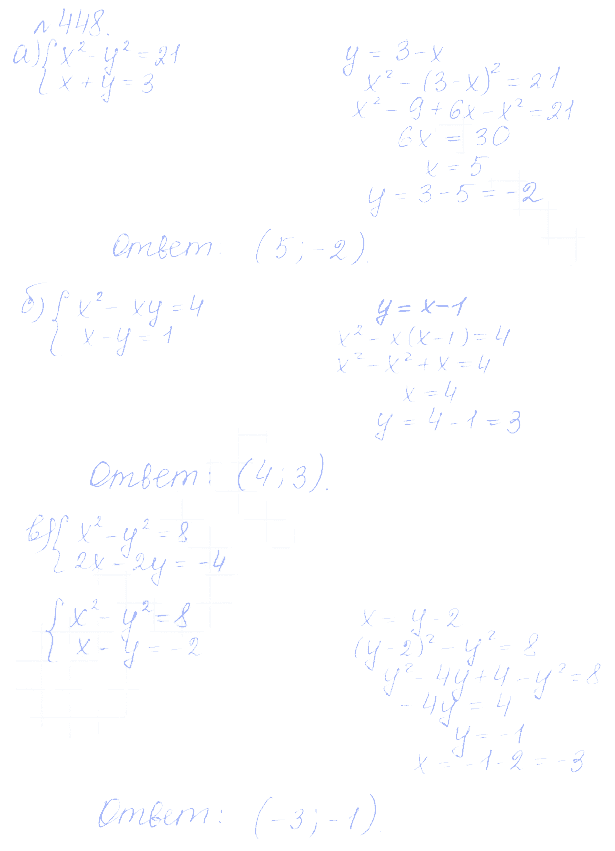 №448.
а) { x² - y² = 21
x + y = 3
y = 3 - x
x² - (3 - x)² = 21
x² - 9 + 6x - x² = 21
6x = 30
x = 5
y = 3 - 5 = -2
Ответ: (5; -2).
б) { x² - xy = 4
x - y = 1
y = x - 1
x² - x(x - 1) = 4
x² - x² + x = 4
x = 4
y = 4 - 1 = 3
Ответ: (4; 3).
в) { x² - y² = 8
2x - 2y = -4
{ x² - y² = 8
x - y = -2
x = y - 2
(y - 2)² - y² = 8
y² - 4y + 4 - y² = 8
-4y = 4
y = -1
x = -1 - 2 = -3
Ответ: (-3; -1).